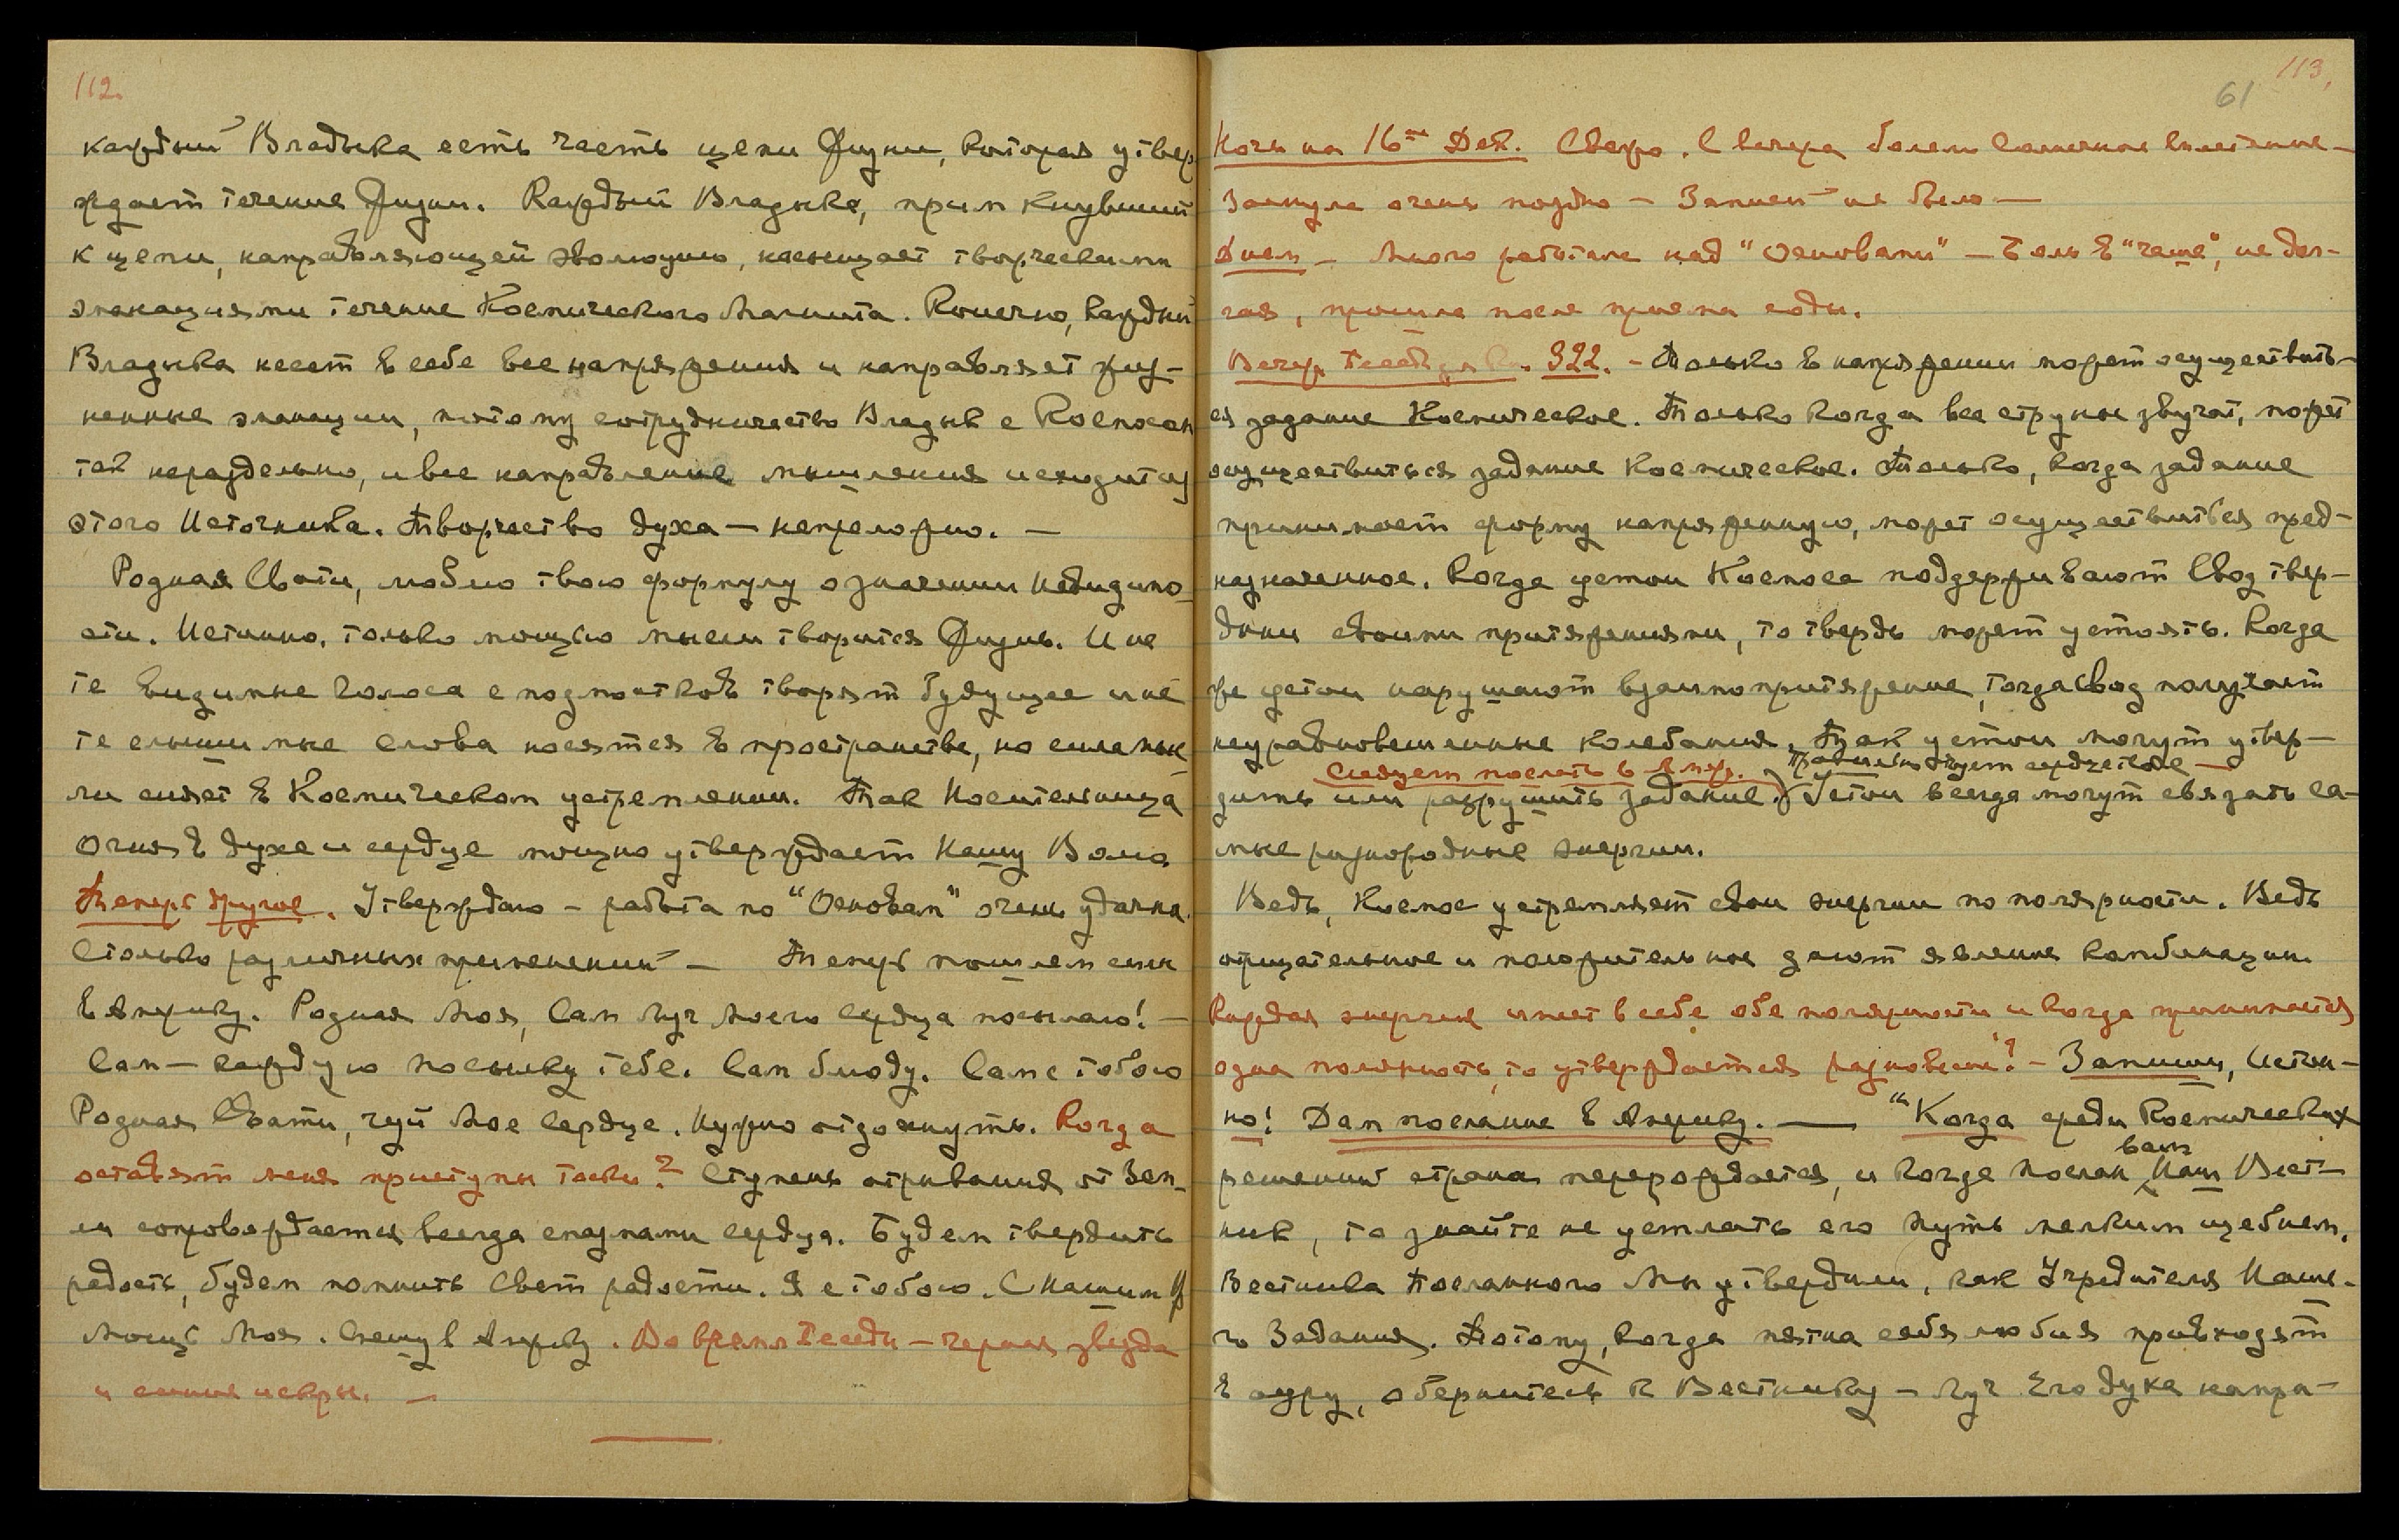 112.
каждый Владыка есть часть цепи Жизни, которая утвер
ждает течение Жизни. Каждый Владыка, примкнувший
к цепи, направляющей эволюцию, насыщает творческими
эманациями течение Космического Магнита. Конечно, каждый
Владыка несет в себе все напряжения и направляет жиз-
ненные эманации, потому сотрудничество Владык с Космосом
так нераздельно, и все направление мышления исходит из
этого Источника. Творчество духа — непреложно. —
Родная Свати, люблю твою формулу о значении Невидимо-
сти. Истинно, только мощью мысли творится Жизнь. И не
те видимые голоса с подмостков творят будущее и не
те слышимые слова носятся в пространстве, но сила мы-
ли сияет в Космическом устремлении. Так Носительница
Огня в духе и сердце мощно утверждает Нашу Волю
Теперь другое. Утверждаю — работа по "Основам" очень удачна.
Столько различных применений — Теперь пошлем им
в Америку. Родная Моя, Сам Луч Моего Сердца посылаю! —
Сам — каждую посылку тебе. Сам блюду. Сам с тобою
Родная Свати, чуй Мое Сердце. Нужно отдохнуть. Когда
оставят меня приступы тоски? Ступень отрывания от Зем-
ли сопровождается всегда спазмами сердца. Будем твердить
радость, будем помнить Свет радости. Я с тобою. С Нашим
Мощь Моя. Спешу в Америку. Во время Беседы — черная звезда
и синие искры. —
113.
61
Ночь на 16ое Дек. Скверно. С вечера болело солнечное сплетение —
Заснула очень поздно — Записей не было —
Днем — Много работала над "Основами" — Боль в "чаше", не дол-
гая, прошла после приема соды.
Вечер. Беседа 322. — Только в напряжении может осуществить-
ся задание Космическое. Только когда все струны звучат, может
осуществиться задание Космическое. Только, когда задание
принимает форму напряженную, может осуществиться пред-
назначенное. Когда устои Космоса поддерживают Свод твер-
дыни своими притяжениями, то твердь может устоять. Когда
же устои нарушают взаимопритяжение, тогда свод получает
неуравновешенные колебания. Так устои могут утвер-
Следует послать в Амер. Правильно чует сердце твое —
дить или разрушить задание. Устои всегда могут связать са-
мые разнородные энергии.
Ведь, Космос устремляет свои энергии по полярности. Ведь
отрицательное и положительное дают явление комбинации.
Каждая энергия имеет в себе обе полярности и когда принимается
одна полярность, то утверждается равновесие? — Запиши, Истин-
но! Дам послание в Америку. — "Когда среди Космических
решений страна перерождается, и когда послан вам Наш Вест-
ник, то знайте не устлать его путь мелким щебнем.
Вестника Посланного Мы утвердили, как Учредителя Наше-
го Задания. Потому, когда пятна себялюбия привходят
в ауру, обернитесь к Вестнику — Луч Его духа напра-